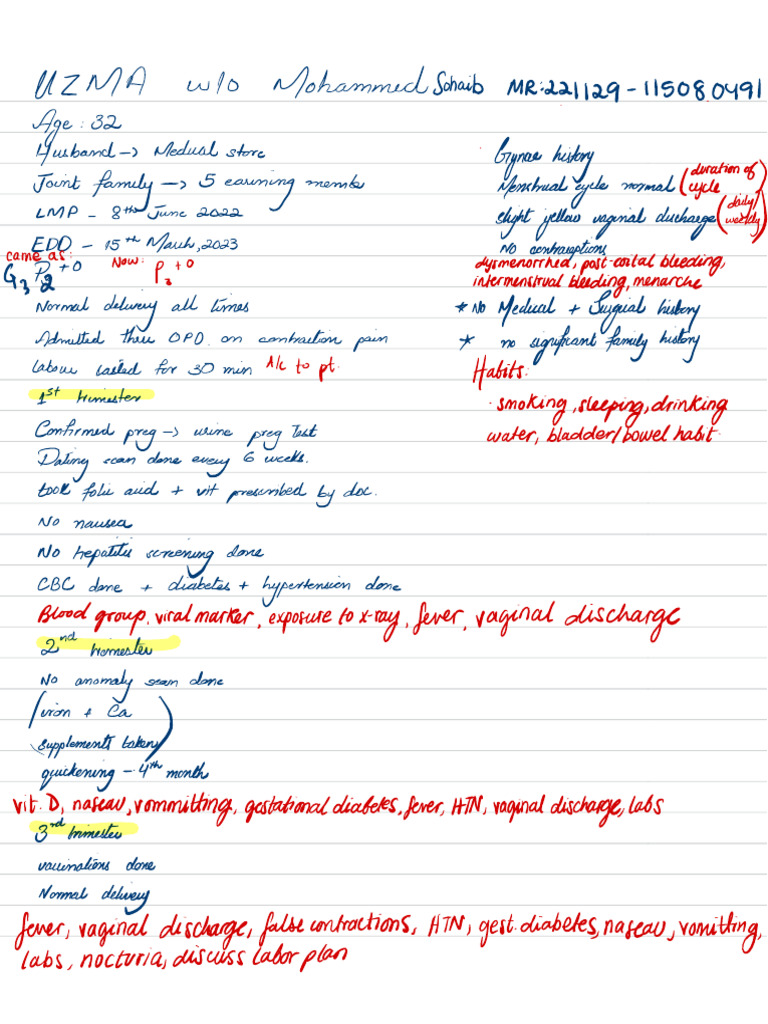 UZMA w/o Mohammed Sohaib MR: 221129-115080491
Age: 32
Husband -> Medical store
Joint family -> 5 earning membe
LMP - 8th June 2022
EDD - 15th March, 2023
came as: G3 P2 +0 Now: P3 +0
Normal delivery all times
Admitted thru OPD on contraction pain
labour lasted for 30 min A/c to pt.
1st trimester
Confirmed preg -> urine preg Test
Dating scan done every 6 weeks.
took folic acid + vit prescribed by doc.
No nausea
No hepatitis screening done
CBC done + diabetes + hypertension done
Blood group, viral marker, exposure to x-ray, fever, vaginal discharge
2nd trimester
No anomaly scan done
(iron + Ca
supplements taken)
quickening - 4th month
vit. D, naseau, vommitting, gestational diabetes, fever, HTN, vaginal discharge, labs
3rd trimester
vaccinations done
Normal delivery
fever, vaginal discharge, false contractions, HTN, gest. diabetes, naseau, vomitting,
labs, nocturia, discuss labor plan
Gynae history
Menstrual cycle normal (duration of cycle)
slight yellow vaginal discharge (daily/weekly)
No contraceptions
dysmenorrhea, post-coital bleeding,
intermenstrual bleeding, menarche
* No Medical + Surgical history
* no significant family history
Habits:
· smoking, sleeping, drinking
water, bladder/bowel habit.